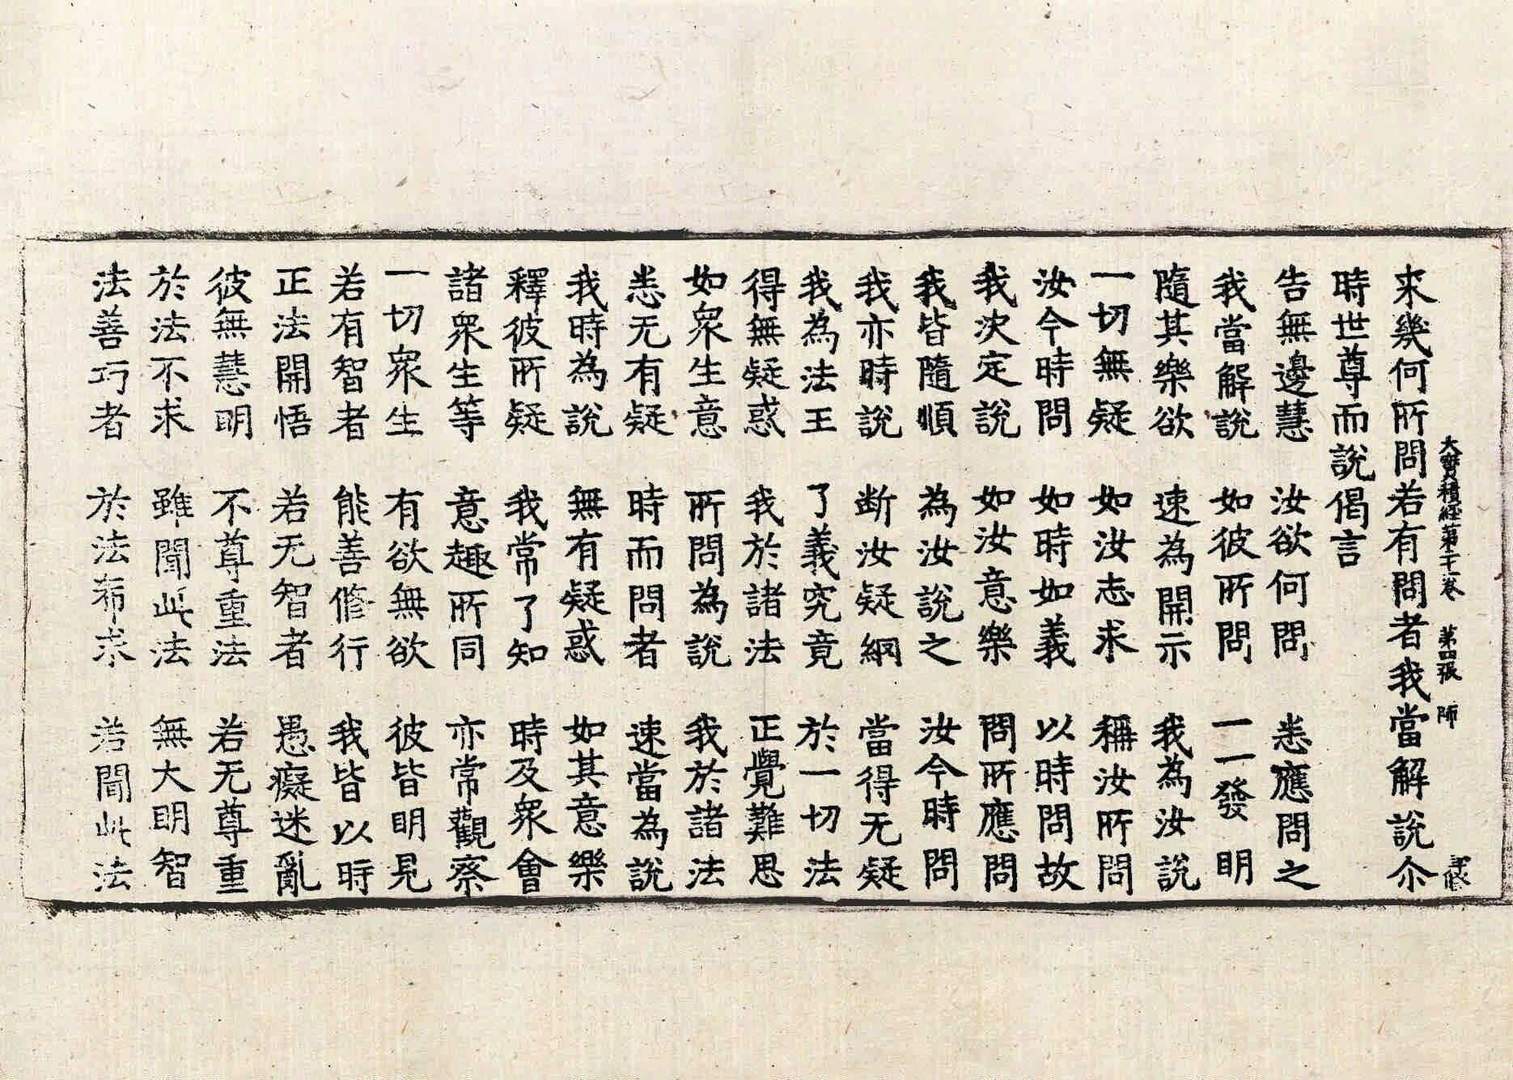 大寶積經第二十一卷 第四張 師
來幾何所問若有問者我當解說尒
時世尊而說偈言
告無邊慧 汝欲何問 悉應問之
我當解說 如彼所問 一一發明
隨其樂欲 速為開示 我為汝說
一切無疑 如汝志求 稱汝所問
汝今時問 如時如義 以時問故
我決定說 如汝意樂 問所應問
我皆隨順 為汝說之 汝今時問
我亦時說 断汝疑網 當得无疑
我為法王 了義究竟 於一切法
得無疑惑 我於諸法 正覺難思
如眾生意 所問為說 我於諸法
悉无有疑 時而問者 速當為說
我時為說 無有疑惑 如其意樂
釋彼所疑 我常了知 時及眾會
諸眾生等 意趣所同 亦常觀察
一切眾生 有欲無欲 彼皆明見
若有智者 能善修行 我皆以時
正法開悟 若无智者 愚癡迷亂
彼無慧明 不尊重法 若无尊重
於法不求 雖聞此法 無大明智
法善巧者 於法希求 若聞此法